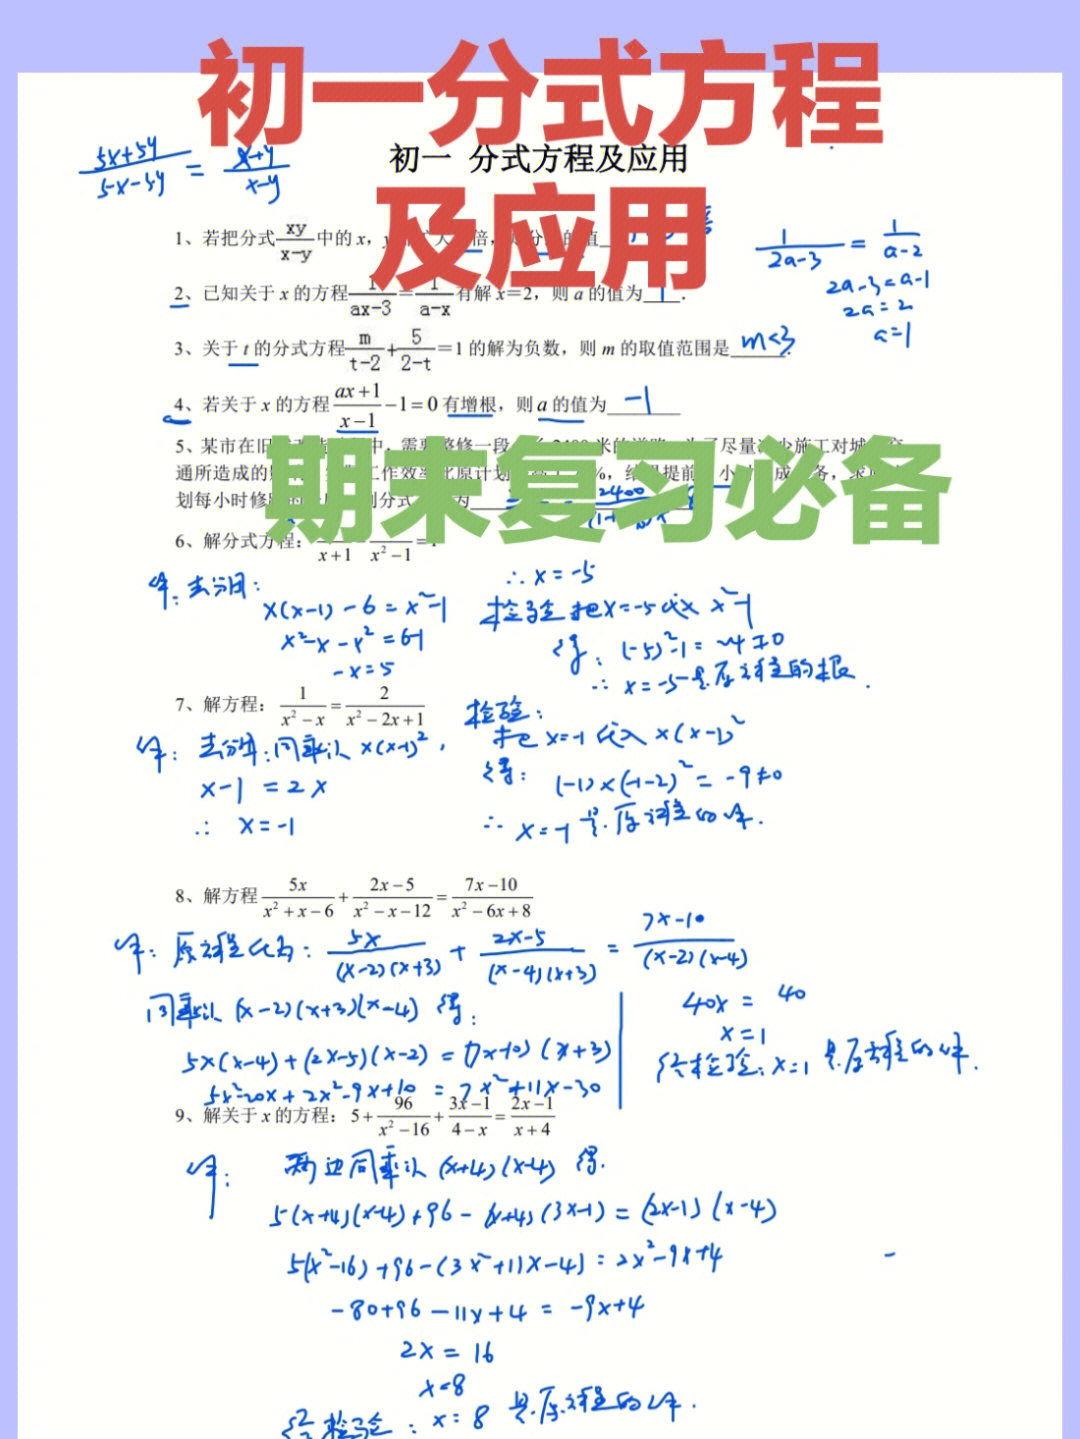 初一分式方程
及应用
初一 分式方程及应用
5x+5y/5x-5y = x+y/x-y
1、若把分式 xy/x-y 中的 x,
倍,
值
1/2a-3 = 1/a-2
2a-3=a-1
2a=2
a=1
2、已知关于 x 的方程 1/ax-3 = 1/a-x 有解 x=2，则 a 的值为 1 .
3、关于 t 的分式方程 m/t-2 + 5/2-t =1 的解为负数，则 m 的取值范围是 m<3 .
4、若关于 x 的方程 ax+1/x-1 -1=0 有增根，则 a 的值为 -1
5、某市在旧 中，需要整修一段 2400 米的道路，为了尽量减少施工对城 交
通所造成的 工作效率比原计划 %，结果提前 小时 成 务，求原
划每小时修 列分式 为 2400
期末复习必备
6、解分式方程： x+1 x²-1 =1
解：去分母：
x(x-1)-6=x²-1
x²-x-x²=6-1
-x=5
∴x=-5
检验 把x=-5代入 x²-1
得：(-5)²-1=24≠0
∴ x=-5是原方程的根.
7、解方程： 1/x²-x = 2/x²-2x+1
解：去分母：同乘以 x(x-1)²,
x-1 =2x
∴ x=-1
检验：
把 x=-1 代入 x(x-1)²
得： (-1)×(-1-2)²=-9≠0
∴ x=-1 是原方程的解.
8、解方程 5x/x²+x-6 + 2x-5/x²-x-12 = 7x-10/x²-6x+8
解：原方程化为： 5x/(x-2)(x+3) + 2x-5/(x-4)(x+3) = 7x-10/(x-2)(x-4)
同乘以 (x-2)(x+3)(x-4) 得：
5x(x-4)+(2x-5)(x-2)=(7x-10)(x+3)
5x²-20x+2x²-9x+10=7x²+11x-30
40x = 40
x=1
经检验：x=1 是原方程的解.
9、解关于 x 的方程：5+ 96/x²-16 + 3x-1/4-x = 2x-1/x+4
解： 两边同乘以 (x+4)(x-4) 得.
5(x+4)(x-4)+96-(x+4)(3x-1)=(2x-1)(x-4)
5(x²-16)+96-(3x²+11x-4)=2x²-9x+4
-80+96-11x+4=-9x+4
2x=16
x=8
经检验：x=8 是原方程的解.